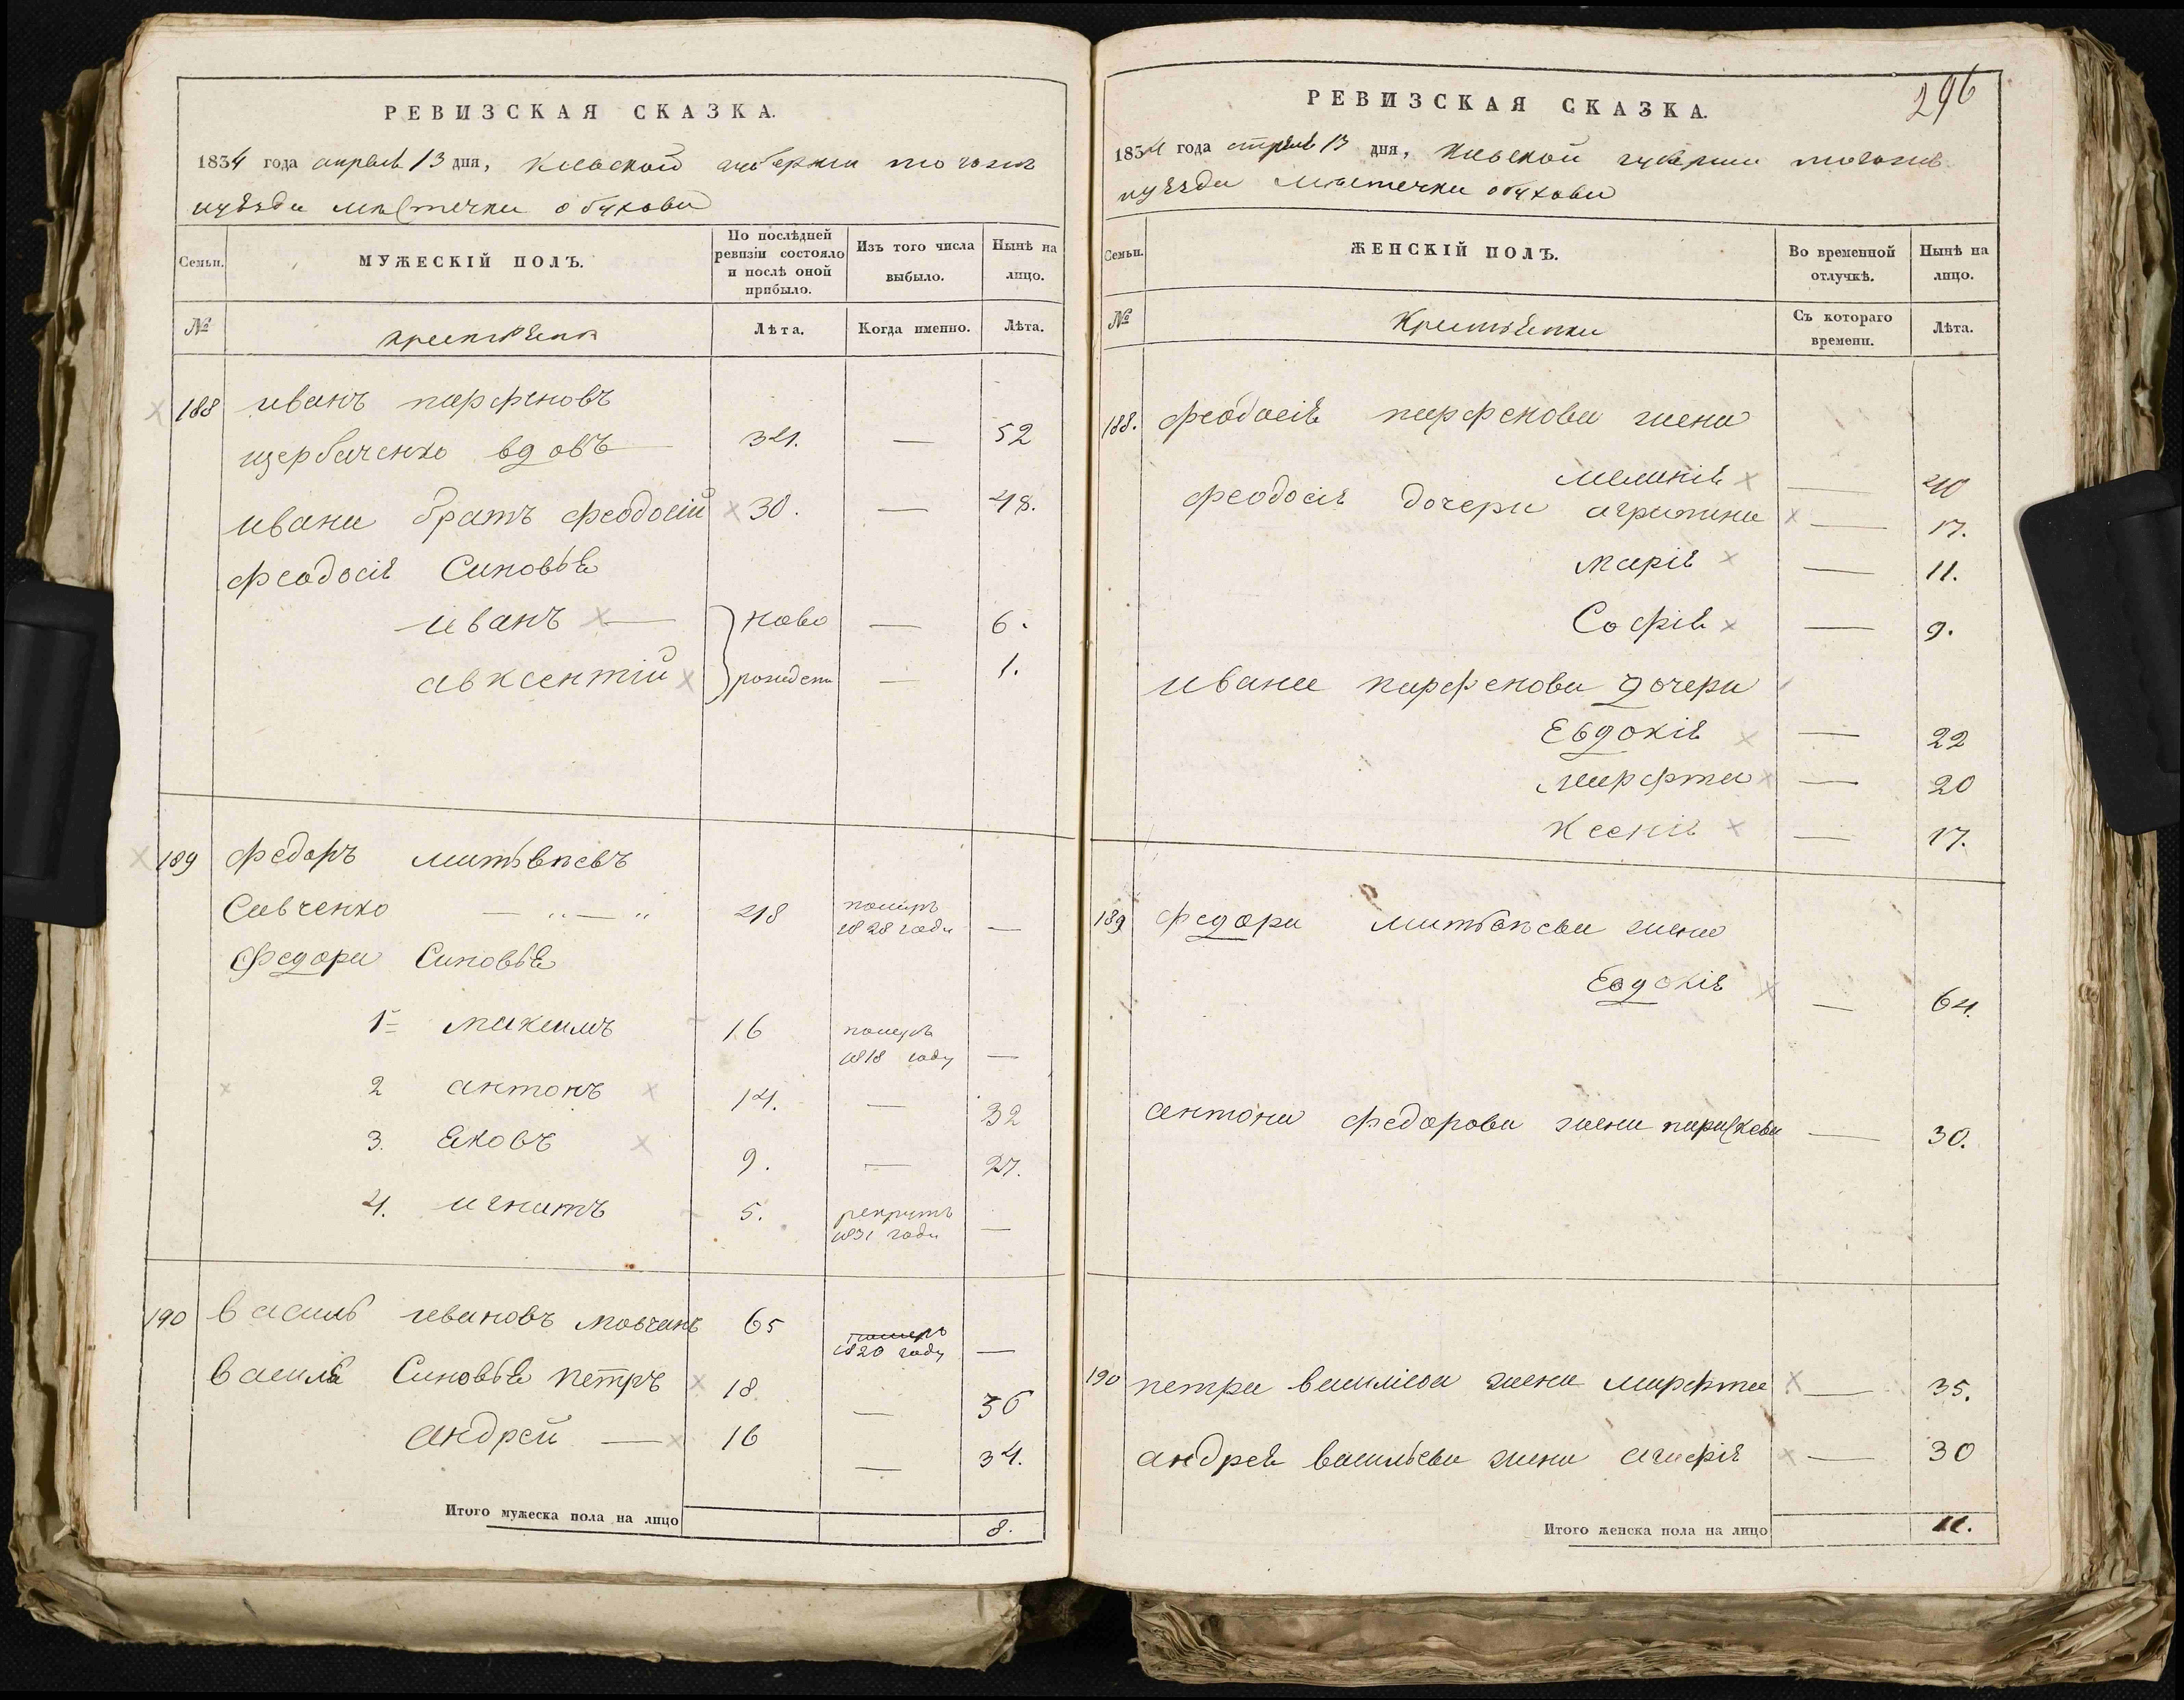 РЕВИЗСКАЯ СКАЗКА.
1834 года апреля 13 дня, Киевской губернии тогожъ
уѣзда местечка обухова
Семьи.
МУЖЕСКІЙ ПОЛЪ.
По послѣдней ревизіи состояло и послѣ оной прибыло.
Изъ того числа выбыло.
Нынѣ на лицо.
№
Лѣта.
Когда именно.
Лѣта.
188 иванъ парфеновъ
щербаченко вдовъ 34. — 52
ивана братъ феодосій 30. — 48.
феодосія Синовья
иванъ — ново — 6.
авксентій рождени — 1.
189 федоръ
Савченко 48 померъ —
1828 года
федора Синовья
1 максимъ 16 померъ
1818 году —
2 антонъ 14. — 32
3. Яковъ 9. — 27.
4. игнатъ 5. рекрутъ
1831 года —
190 василь ивановъ мовчанъ 65 померъ
1820 году —
василя Синовья петръ 18 — 36
андрей — 16 — 34.
Итого мужеска пола на лицо 8.
296
РЕВИЗСКАЯ СКАЗКА.
1834 года апреля 13 дня, Киевской губернии тогожъ
уѣзда местечка обухова
Семьи.
ЖЕНСКІЙ ПОЛЪ.
Во временной отлучкѣ.
Нынѣ на лицо.
№
Крестьянки
Съ котораго времени.
Лѣта.
188. феодосія парфенова жена
меланія — 40
феодосія дочери агрипина — 17.
марія — 11.
Софія — 9.
ивана парфенова дочери
Евдокія — 22
марфта — 20
Ксенія — 17.
189 федора жена
Евдокія — 64.
антона федорова жена параскева — 30.
190 петра василіева жена марфта — 35.
андрея васильева жена агафія — 30
Итого женска пола на лицо 11.